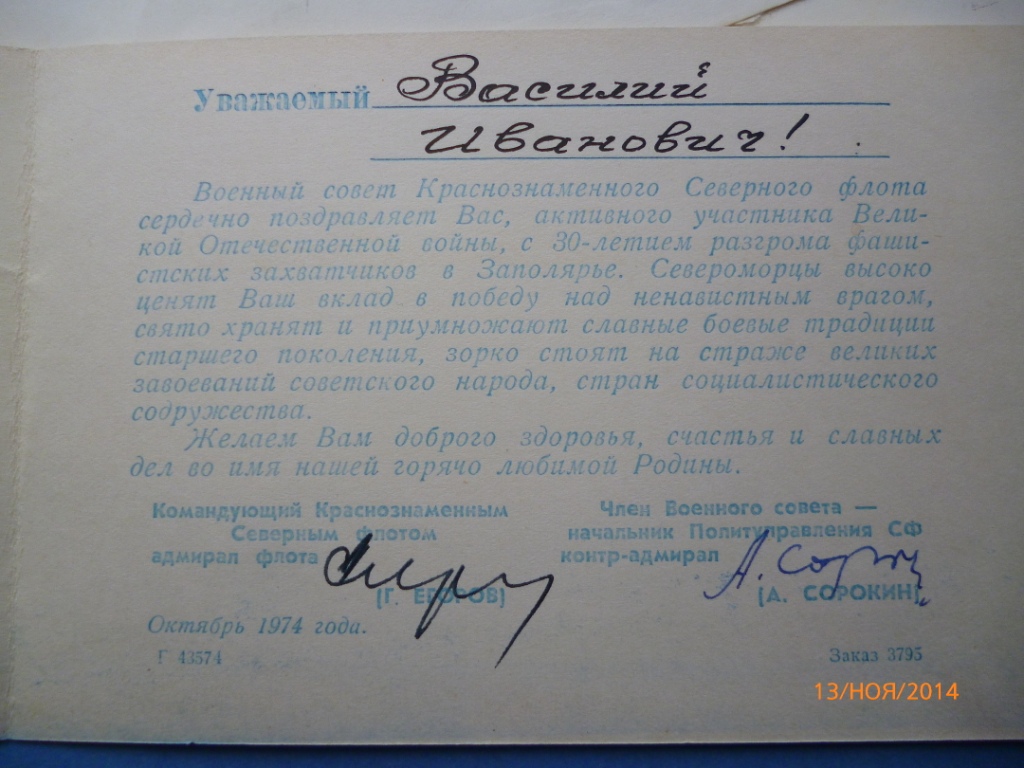 Уважаемый Василий
Иванович!
Военный совет Краснознаменного Северного флота
сердечно поздравляет Вас, активного участника Вели-
кой Отечественной войны, с 30-летием разгрома фаши-
стских захватчиков в Заполярье. Североморцы высоко
ценят Ваш вклад в победу над ненавистным врагом,
свято хранят и приумножают славные боевые традиции
старшего поколения, зорко стоят на страже великих
завоеваний советского народа, стран социалистического
содружества.
Желаем Вам доброго здоровья, счастья и славных
дел во имя нашей горячо любимой Родины.
Командующий Краснознаменным
Северным флотом
адмирал флота
(Г. ЕГОРОВ)
Член Военного совета —
начальник Политуправления СФ
контр-адмирал
А. Сорок
(А. СОРОКИН).
Октябрь 1974 года.
Г 43574
Заказ 3795
13/НОЯ/2014